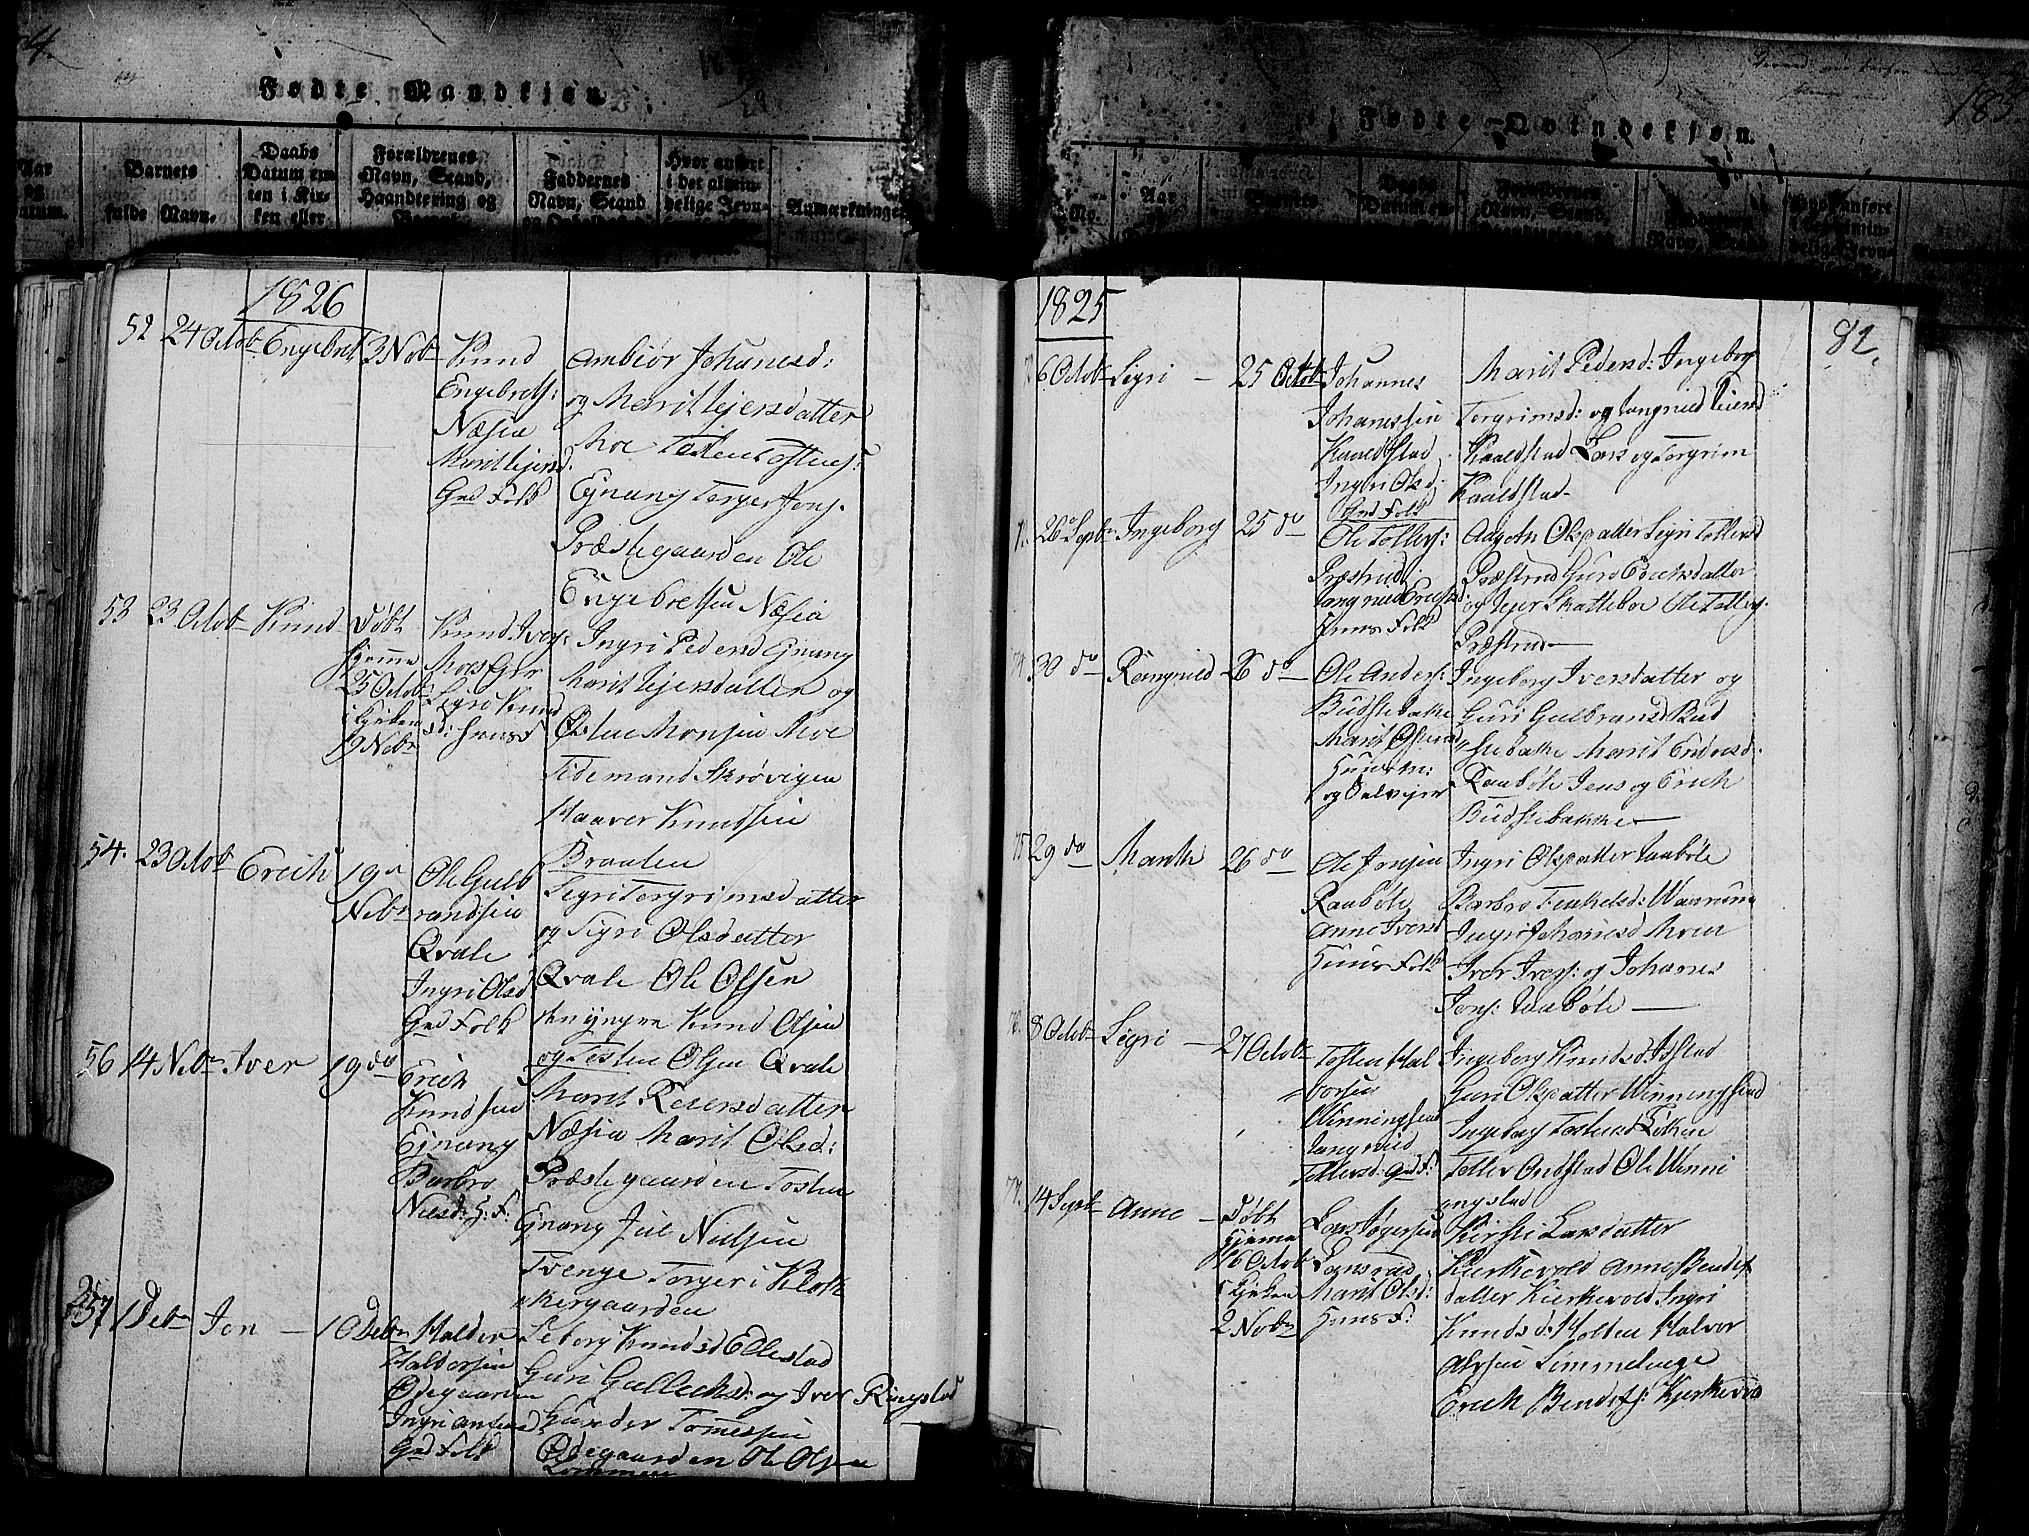 Fødte Mandkjøn.
Aar og Datum.
Barnets fulde Navn.
Daabs Datum enten i Kirken eller
Forældrenes Navn, Stand, Haandtering og
Faddernes Navn, Stand
Hvor anført i det almindelige Jevn-
Anmærkninger
1826
52 24 Octob Engebret 3 Nobr
Knud
Engebrets:
Næsia
Marit Ejersd.
Gmd Folk
Ambiør Johanesd:
og Marit Ejersdatter
Moe Tosten Tostens:
Ejnang Torger Jons.
Præstegaarden Ole
Engebretsen Næsia
53 23 Octob Knud
Døbt
hjemme
25 Octob
i Kirken
19 Nobr
Knud Ivers:
Sigri Knud
sd: Huus F
Ingri Pedersd Ejnang
Marit Ejersdatter og
Østen Monsen Moe
Tidemand Skrøvigen
Haaver Knudsen
Braaten
54. 23 Octob Erich 19 Nobr
Ole Gulb
randsen
Qvale
Ingri Olsd
Gmd Folk
Sigri Torgrimsdatter
og Sigri Olsdatter
Qvale Ole Olsen
Knud Olsen
og Tosten Olsen Qvale
56 14 Nobr Iver 19 do
Erich
Knudsen
Ejnang
Barbro
Nielsd: H: F:
Marit Reiersdatter
Næsia Marit Olsd:
Præstegaarden Tosten
Ejnang Juul Nielsen
Tvenge Torger i Klok
kergaarden
57 1 Debr Jon — 10 Debr
Halder
Haldorsen
Ødegaarden
Ingri
Gmd Folk
Seborg Knudsd Ellestad
Guri Gulleiksd: og Iver Ringstad
Gunder Tomesen
Ødegaarden Ole Olsen
Lommen
Fødte-Qvindekjøn.
No.
Aar
Barnets
Daabs Datum en-
Forældrenes Navn, Stand,
Navn, Stand
Hvor anført i det almindelige Jevn-
185
1825
82.
6 Octob Sigri — 25 Octob
Johannes
Johanessen
Kaaldstad
Ingri Olsd:
Gmd Folk
Marit Pedersd: Ingeborg
Torgrimsd: og Rangnild
Kaaldstad Lars og Torgrim
Kaaldstad
26 Septbr Ingeborg 25 do
Ole Tollefs:
Præstrud
Rangnild Erichsd
Huus Folk
Aagotn Olsdatter Sigri Tollefsd
Præstrud Guro Erichsdatter
og Ejer Skattebøe Ole Tollefs.
Præstrud
74. 30 do Rangnild 26 do
Ole Anders:
Budslebakke
Marit Østensd
Ingeborg Iversdatter og
Guri Gulbransd Bud
slebakke Marit Endresd.
Raabøle Jens og Erich
Budslebakke
75 29 do Marith 26 do
Ole Jonsen
Raabøle
Anne Iversd
Huus Folk
Ingri Olsdatter Raabøle
Barbro Tenkelsd: Waarum
Ingri Johanesd Moen
Iver Ivers: og Johanes
Jons: Raabøle
76. 8 Octob Sigri — 27 Octob
Tosten Hal
vorsen
Winningstad
Rangnild
Tollefsd: Gmd F:
Ingeborg Knudsd Idstad
Guri Olsdatter Winningstad
Ingeborg Tostensd Løken
Tollef Ondstad Ole Winni
ngstad
77. 14 Septbr Anne
Døbt
hjemme
16 Octob
i Kirken
2 Nobr
Lars
Marit Olsd:
Huus F:
Kirsti Larsdatter
Kierkevold Anne Bendix
datter Kierkevold Ingri
Knudsd: Holten Halvor
Erich Bendix: Kjerkevold